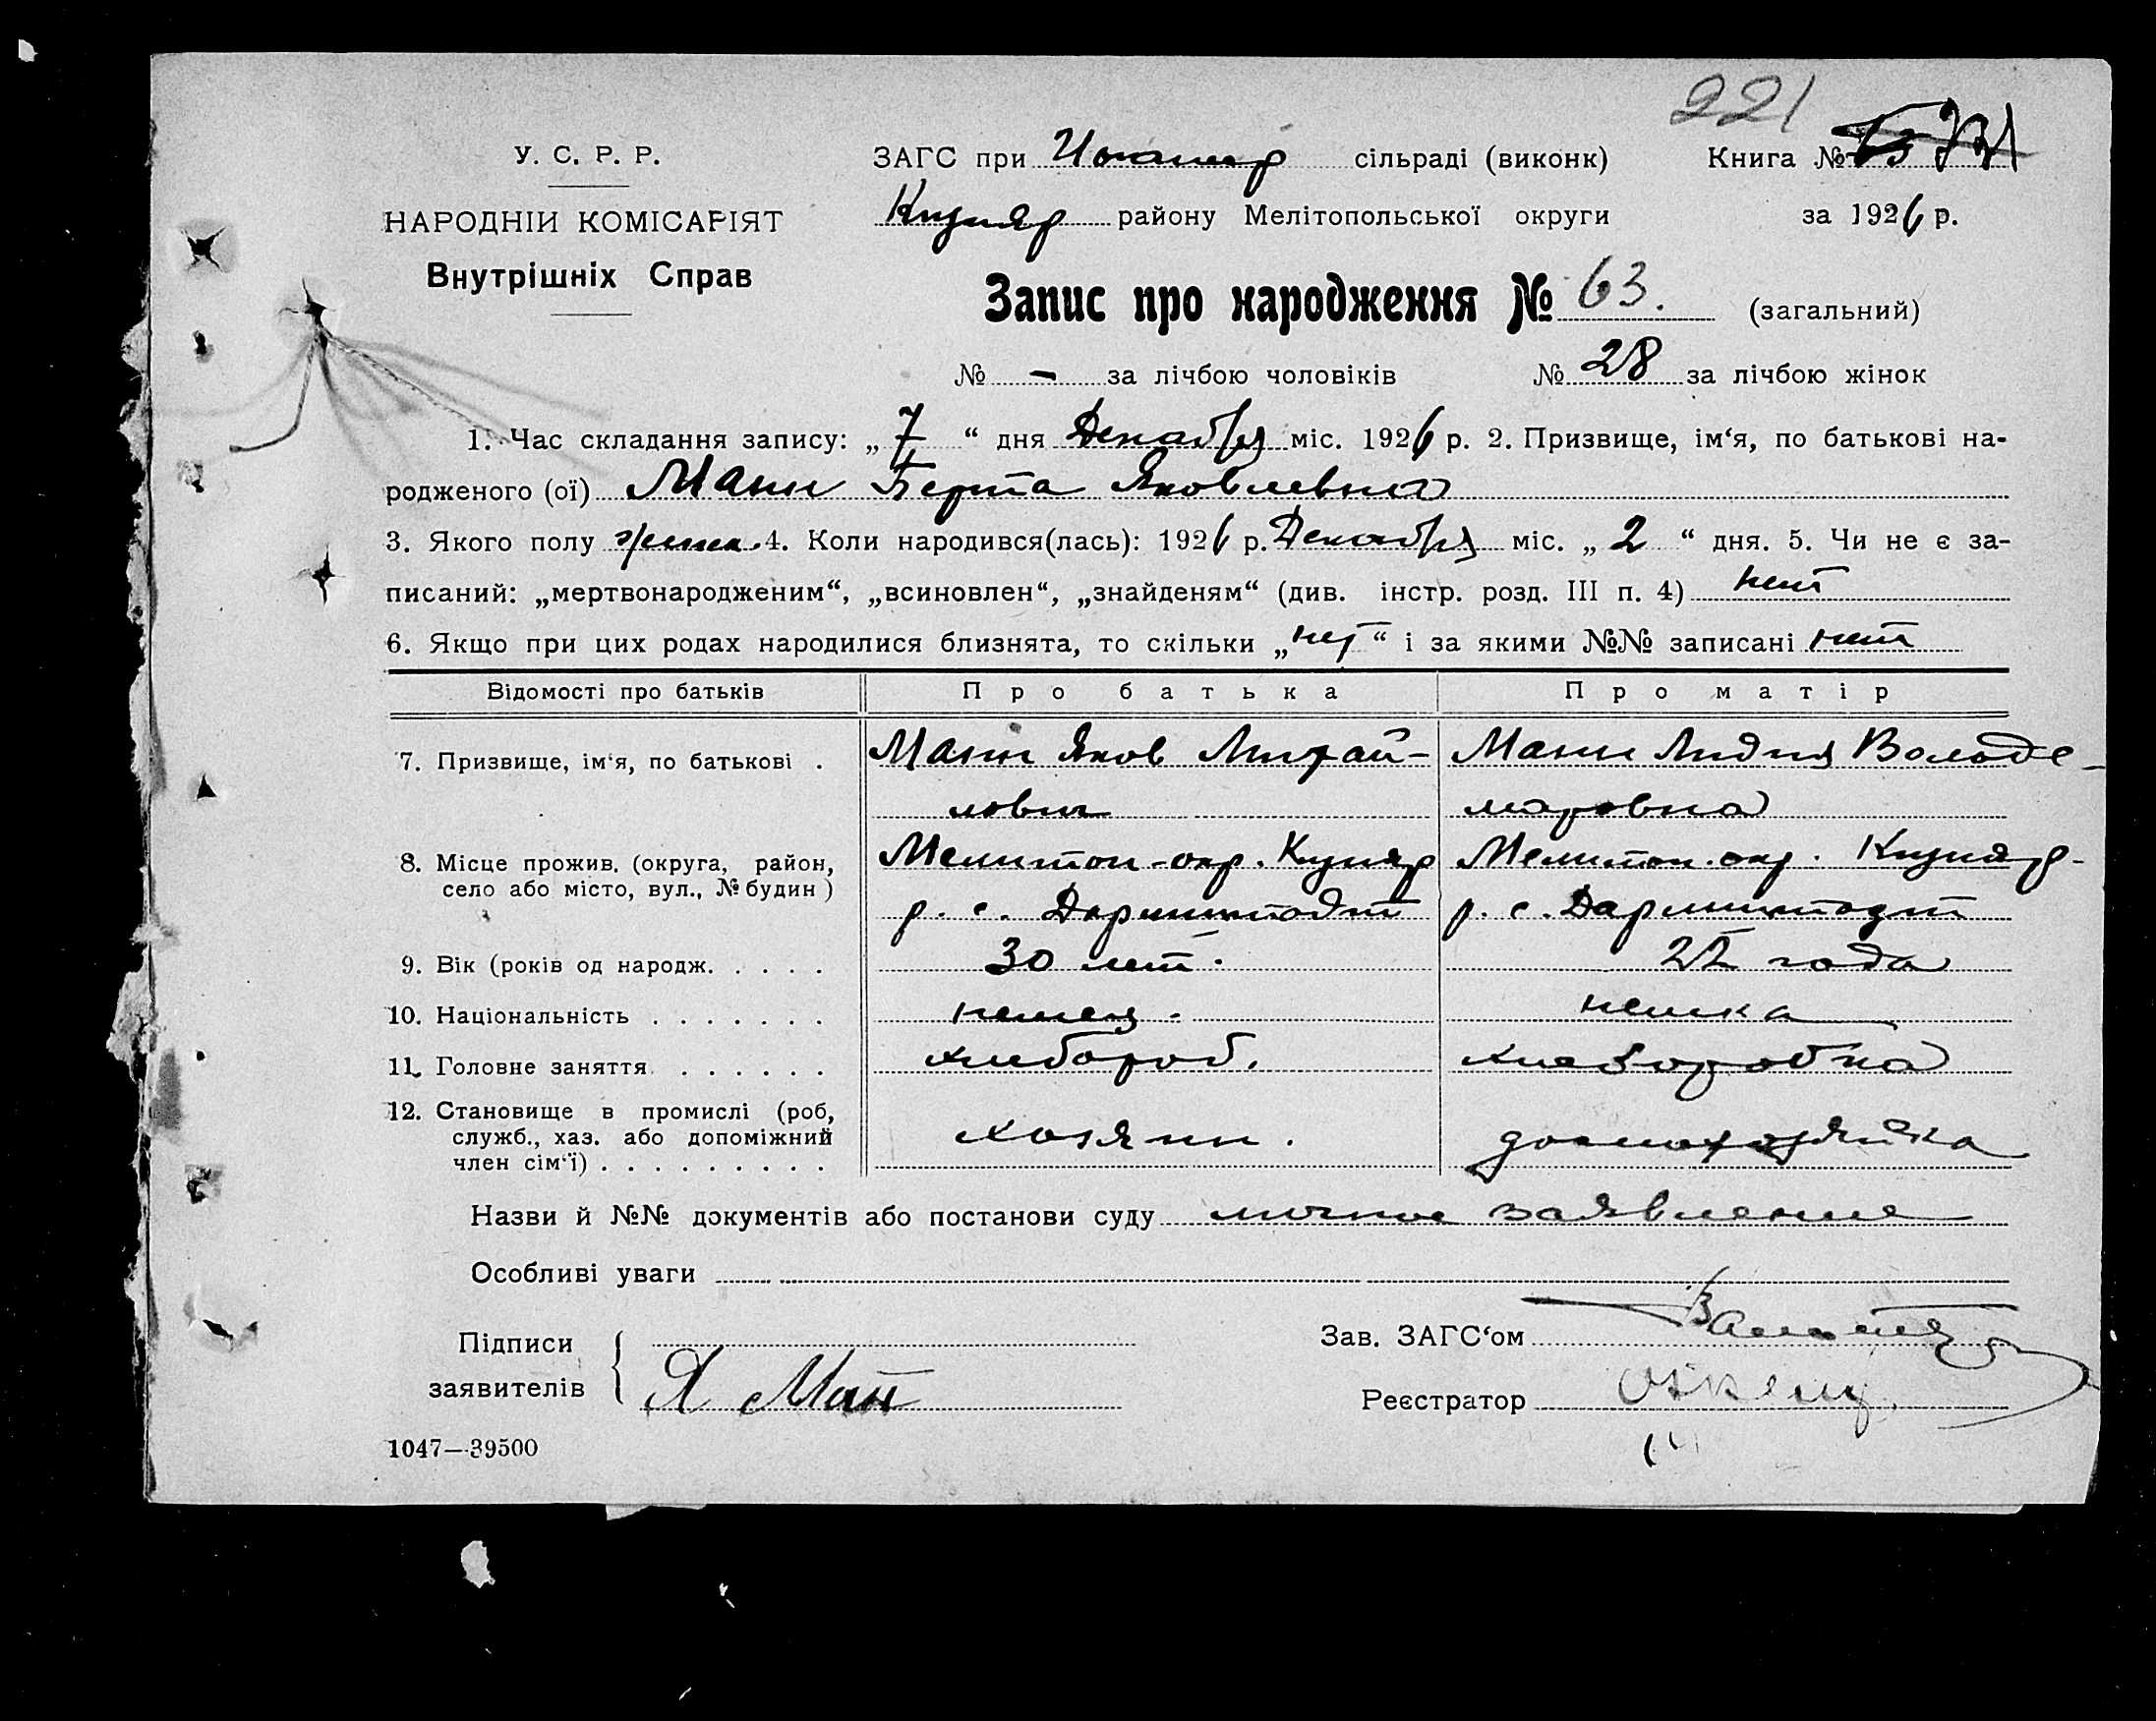 221
У. С. Р. Р.
ЗАГС при сільраді (виконк) Книга №
НАРОДНІЙ КОМІСАРІЯТ
района району Мелітопольської округи за 1926 р.
Внутрішніх Справ
Запис про народження № 63. (загальний)
№ - за лічбою чоловіків № 28 за лічбою жінок
1. Час складання запису: „7“ дня Декабря міс. 1926 р. 2. Призвище, ім‘я, по батькові на-
родженого (ої) Манн Берта Яковлевна
3. Якого полу женск. 4. Коли народився(лась): 1926 р. Декабря міс. „2“ дня. 5. Чи не є за-
писаний: „мертвонародженим“, „всиновлен“, „знайденям“ (див. інстр. розд. III п. 4) нет
6. Якщо при цих родах народилися близнята, то скільки „нет“ і за якими №№ записані нет
Відомості про батьків Про батька Про матір
7. Призвище, ім‘я, по батькові . Манн Яков Михай- Манн Лидия Вольде-
лович маровна
8. Місце прожив. (округа, район, Мелитоп-окр. Кизияр Мелитоп. окр. Кизияр-
село або місто, вул., № будин) р. с. Дармштадт р. с. Дармштадт
9. Вік (років од народж. . . . . 30 лет. 22 года
10. Національність . . . . . . . немец. немка
11. Головне заняття . . . . . . хлебороб. хлеборобка
12. Становище в промислі (роб,
служб., хаз. або допоміжний хозяин. домохозяйка
член сім‘ї) . . . . . . . . .
Назви й №№ документів або постанови суду личное заявление
Особливі уваги
Підписи Зав. ЗАГС‘ом
заявителів Я Ман Реєстратор
1047—39500